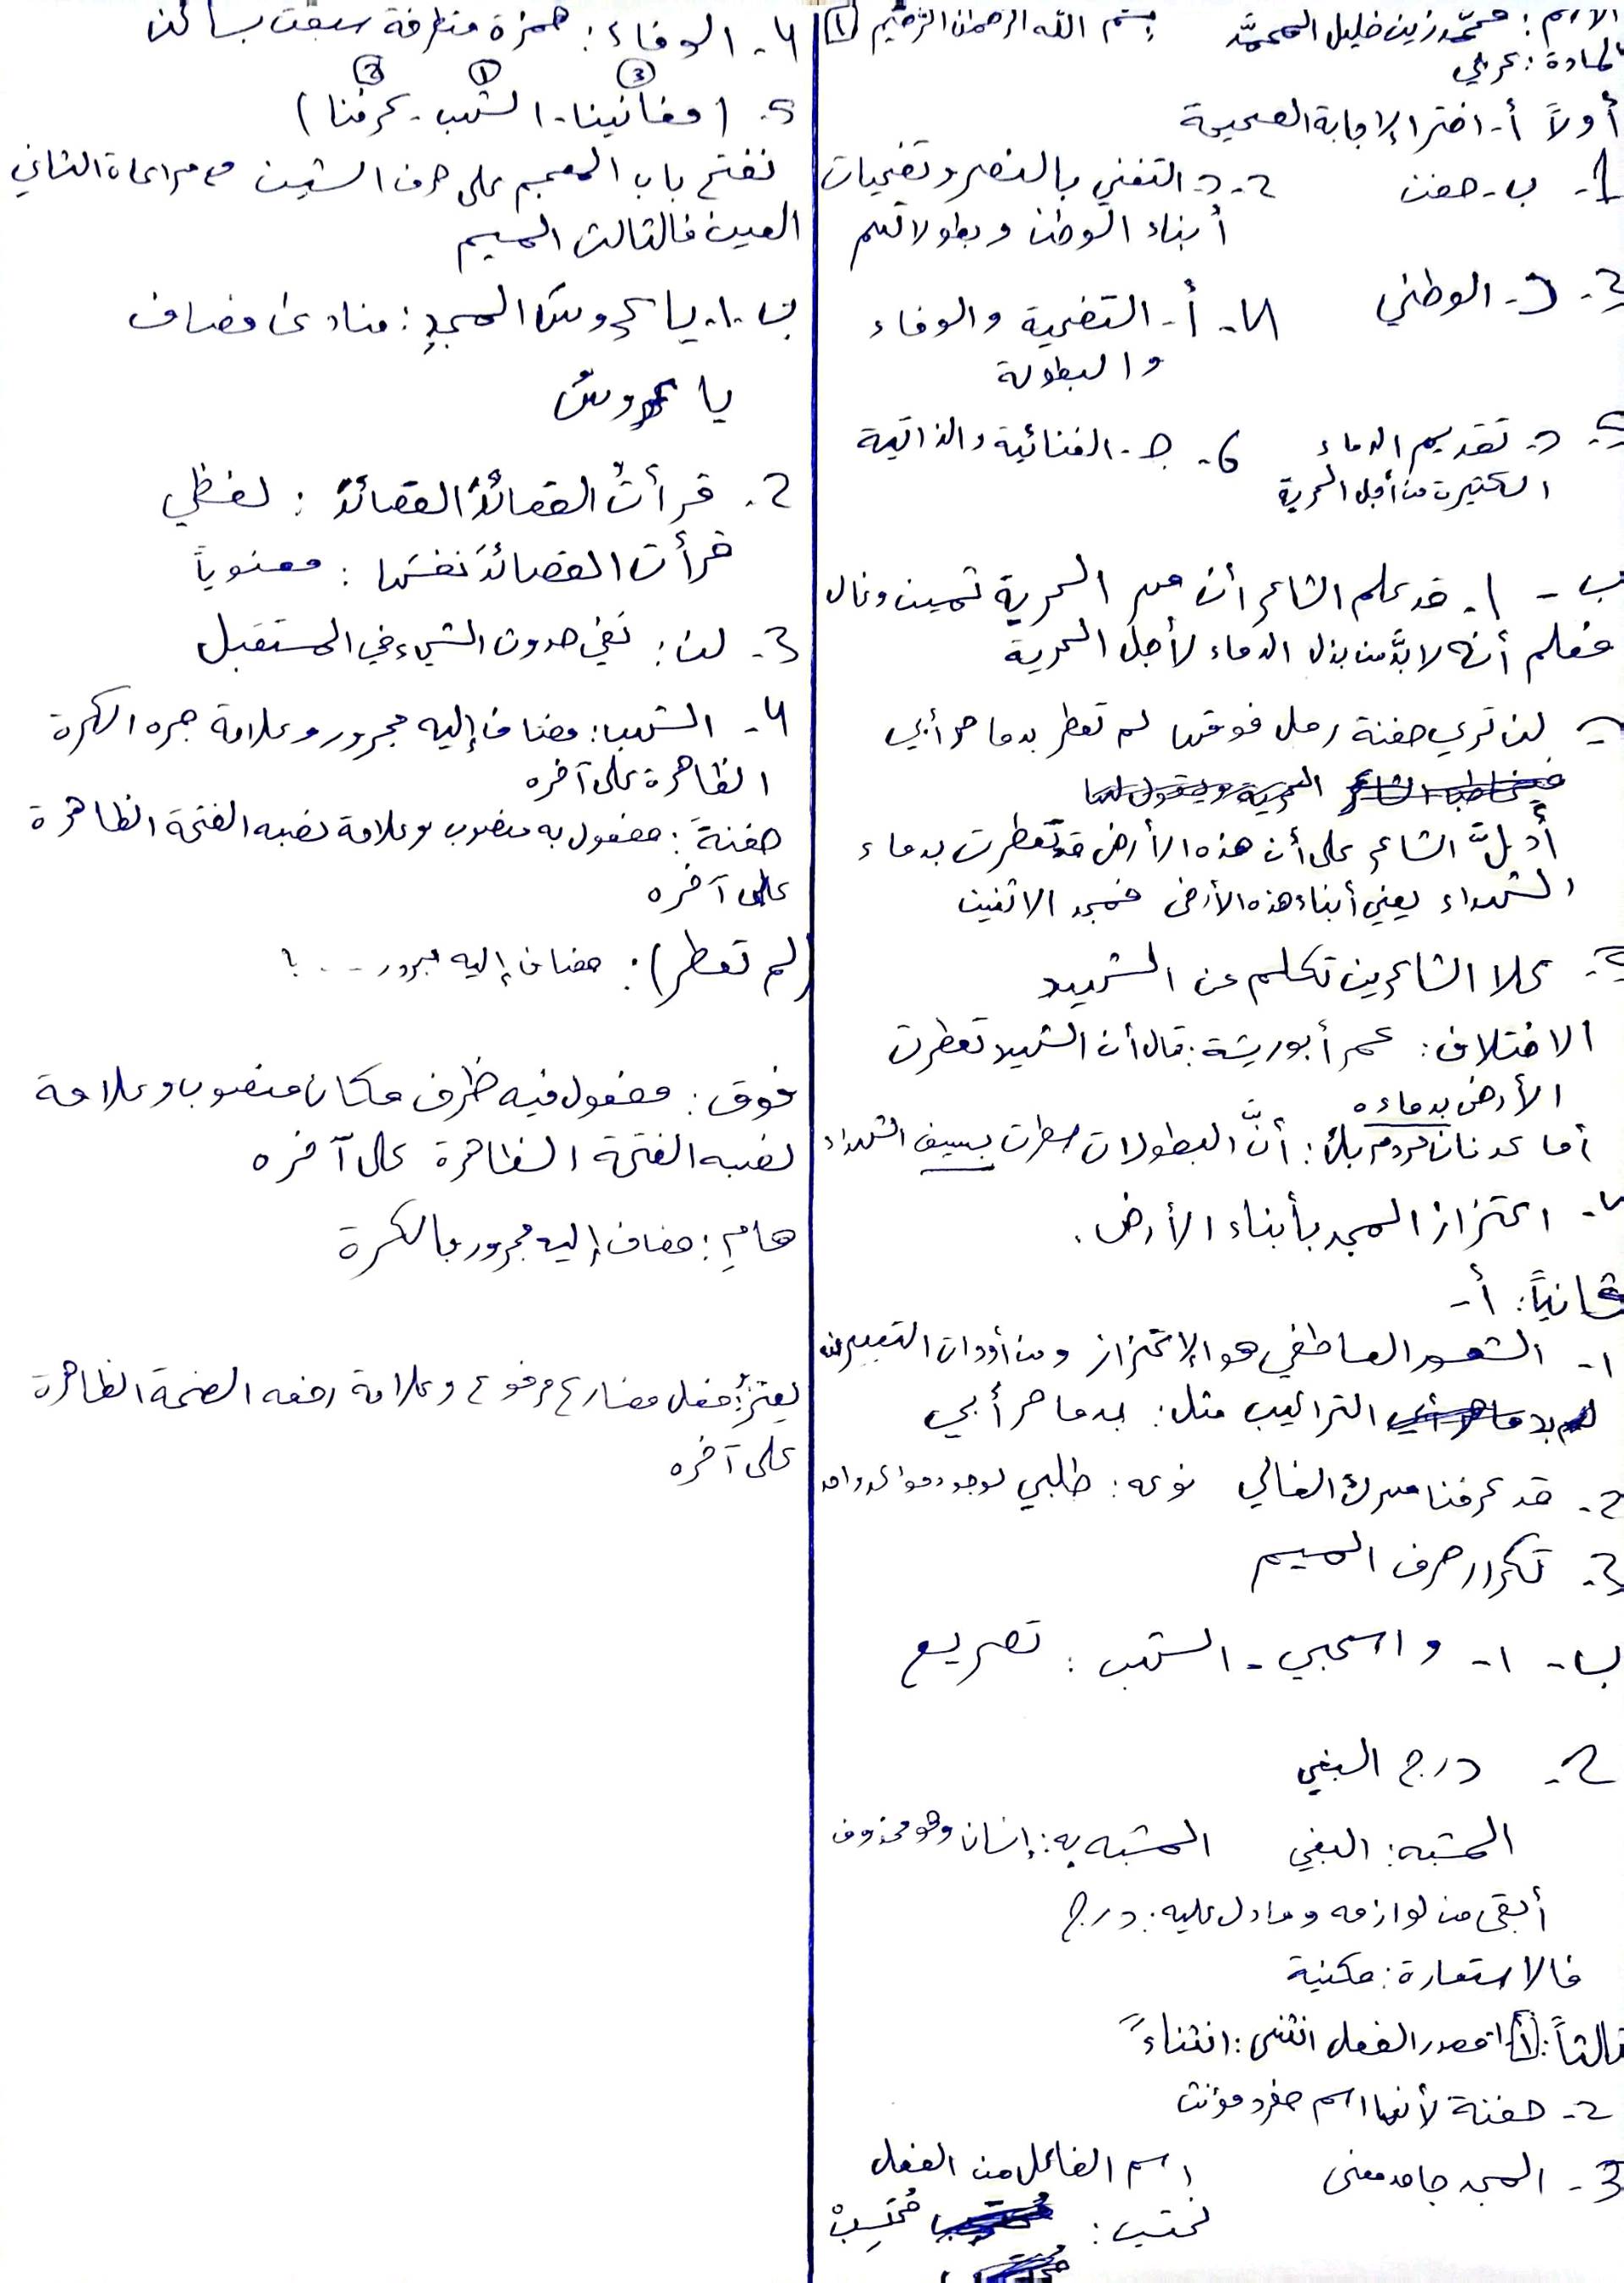 الاسم: محمّد زين خليل المحمَّد بسم الله الرحمن الرحيم (1)
المادة: عربي
أولاً أ- اختر الإجابة الصحيحة
1- ب- حفن 2- د- التغني بالنصر وتضحيات
أبناء الوطن وبطولاتهم
3- د- الوطني 4- أ- التضحية والوفاء
والبطولة
5- د- تقديم الدماء 6- ج- الغنائية والذاتية
الكثيرة من أجل الحرية
ب - 1- قد علم الشاعر أن مهر الحرية ثمين وغال
فعلم أنه لا بدَّ من بذل الدماء لأجل الحرية
2- لن تري حفنة رمل فوقها لم تعطر بدما حر أبي
أدلَّ الشاعر على أن هذه الأرض قد تعطرت بدماء
الشهداء يعني أبناء هذه الأرض فمجد الاثنين
3- كلا الشاعرين تكلم عن الشهيد
الاختلاف: عمر أبو ريشة: قال أن الشهيد تعطرت
الأرض بدماءه
أما عدنان مردم بك: أنَّ البطولات سطرت بسيف الشهداء
4- اعتزاز المجد بأبناء الأرض.
ثانياً: أ-
1- الشعور العاطفي هو الإعتزاز ومن أدوات التعبير
التراكيب مثل: بدما حر أبي
2- قد عرفنا مهرك الغالي نوعه: طلبي لوجود مؤكد واحد
3- تكرار حرف الميم
ب- 1- واسحبي - الشهب: تصريع
2- درج البغي
المشبه: البغي المشبه به: إنسان وهو محذوف
أبقى من لوازمه وما دل عليه: درج
فالاستعارة: مكنية
ثالثاً: أ 1 مصدر الفعل انثنى: انثناءً
2- حفنة لأنها اسم مفرد مؤنث
3- المجد جامد معنى اسم الفاعل من الفعل
نحتسب: مُحتَسِبْ
4- الوفاء: همزة متطرفة سبقت بساكن
(3) (1) (2)
5- (مغانينا - الشهب - عرفنا)
نفتح باب المعجم على حرف الشين مع مراعاة الثاني
العين فالثالث الميم
ب- 1- يا عروسَ المجدِ: منادى مضاف
يا عروسُ
2- قرأتُ القصائدَ القصائدَ: لفظي
قرأت القصائدَ نفسَها: معنوياً
3- لن: نفي حدوث الشيء في المستقبل
4- الشهب: مضاف إليه مجرور وعلامة جره الكسرة
الظاهرة على آخره
حفنةَ: مفعول به منصوب وعلامة نصبه الفتحة الظاهرة
على آخره
(لم تعطر): مضاف إليه مجرور ... ؟
فوق: مفعول فيه ظرف مكان منصوب وعلامة
نصبه الفتحة الظاهرة على آخره
هامِ: مضاف إليه مجرور بالكسرة
يعتزُّ: فعل مضارع مرفوع وعلامة رفعه الضمة الظاهرة
على آخره